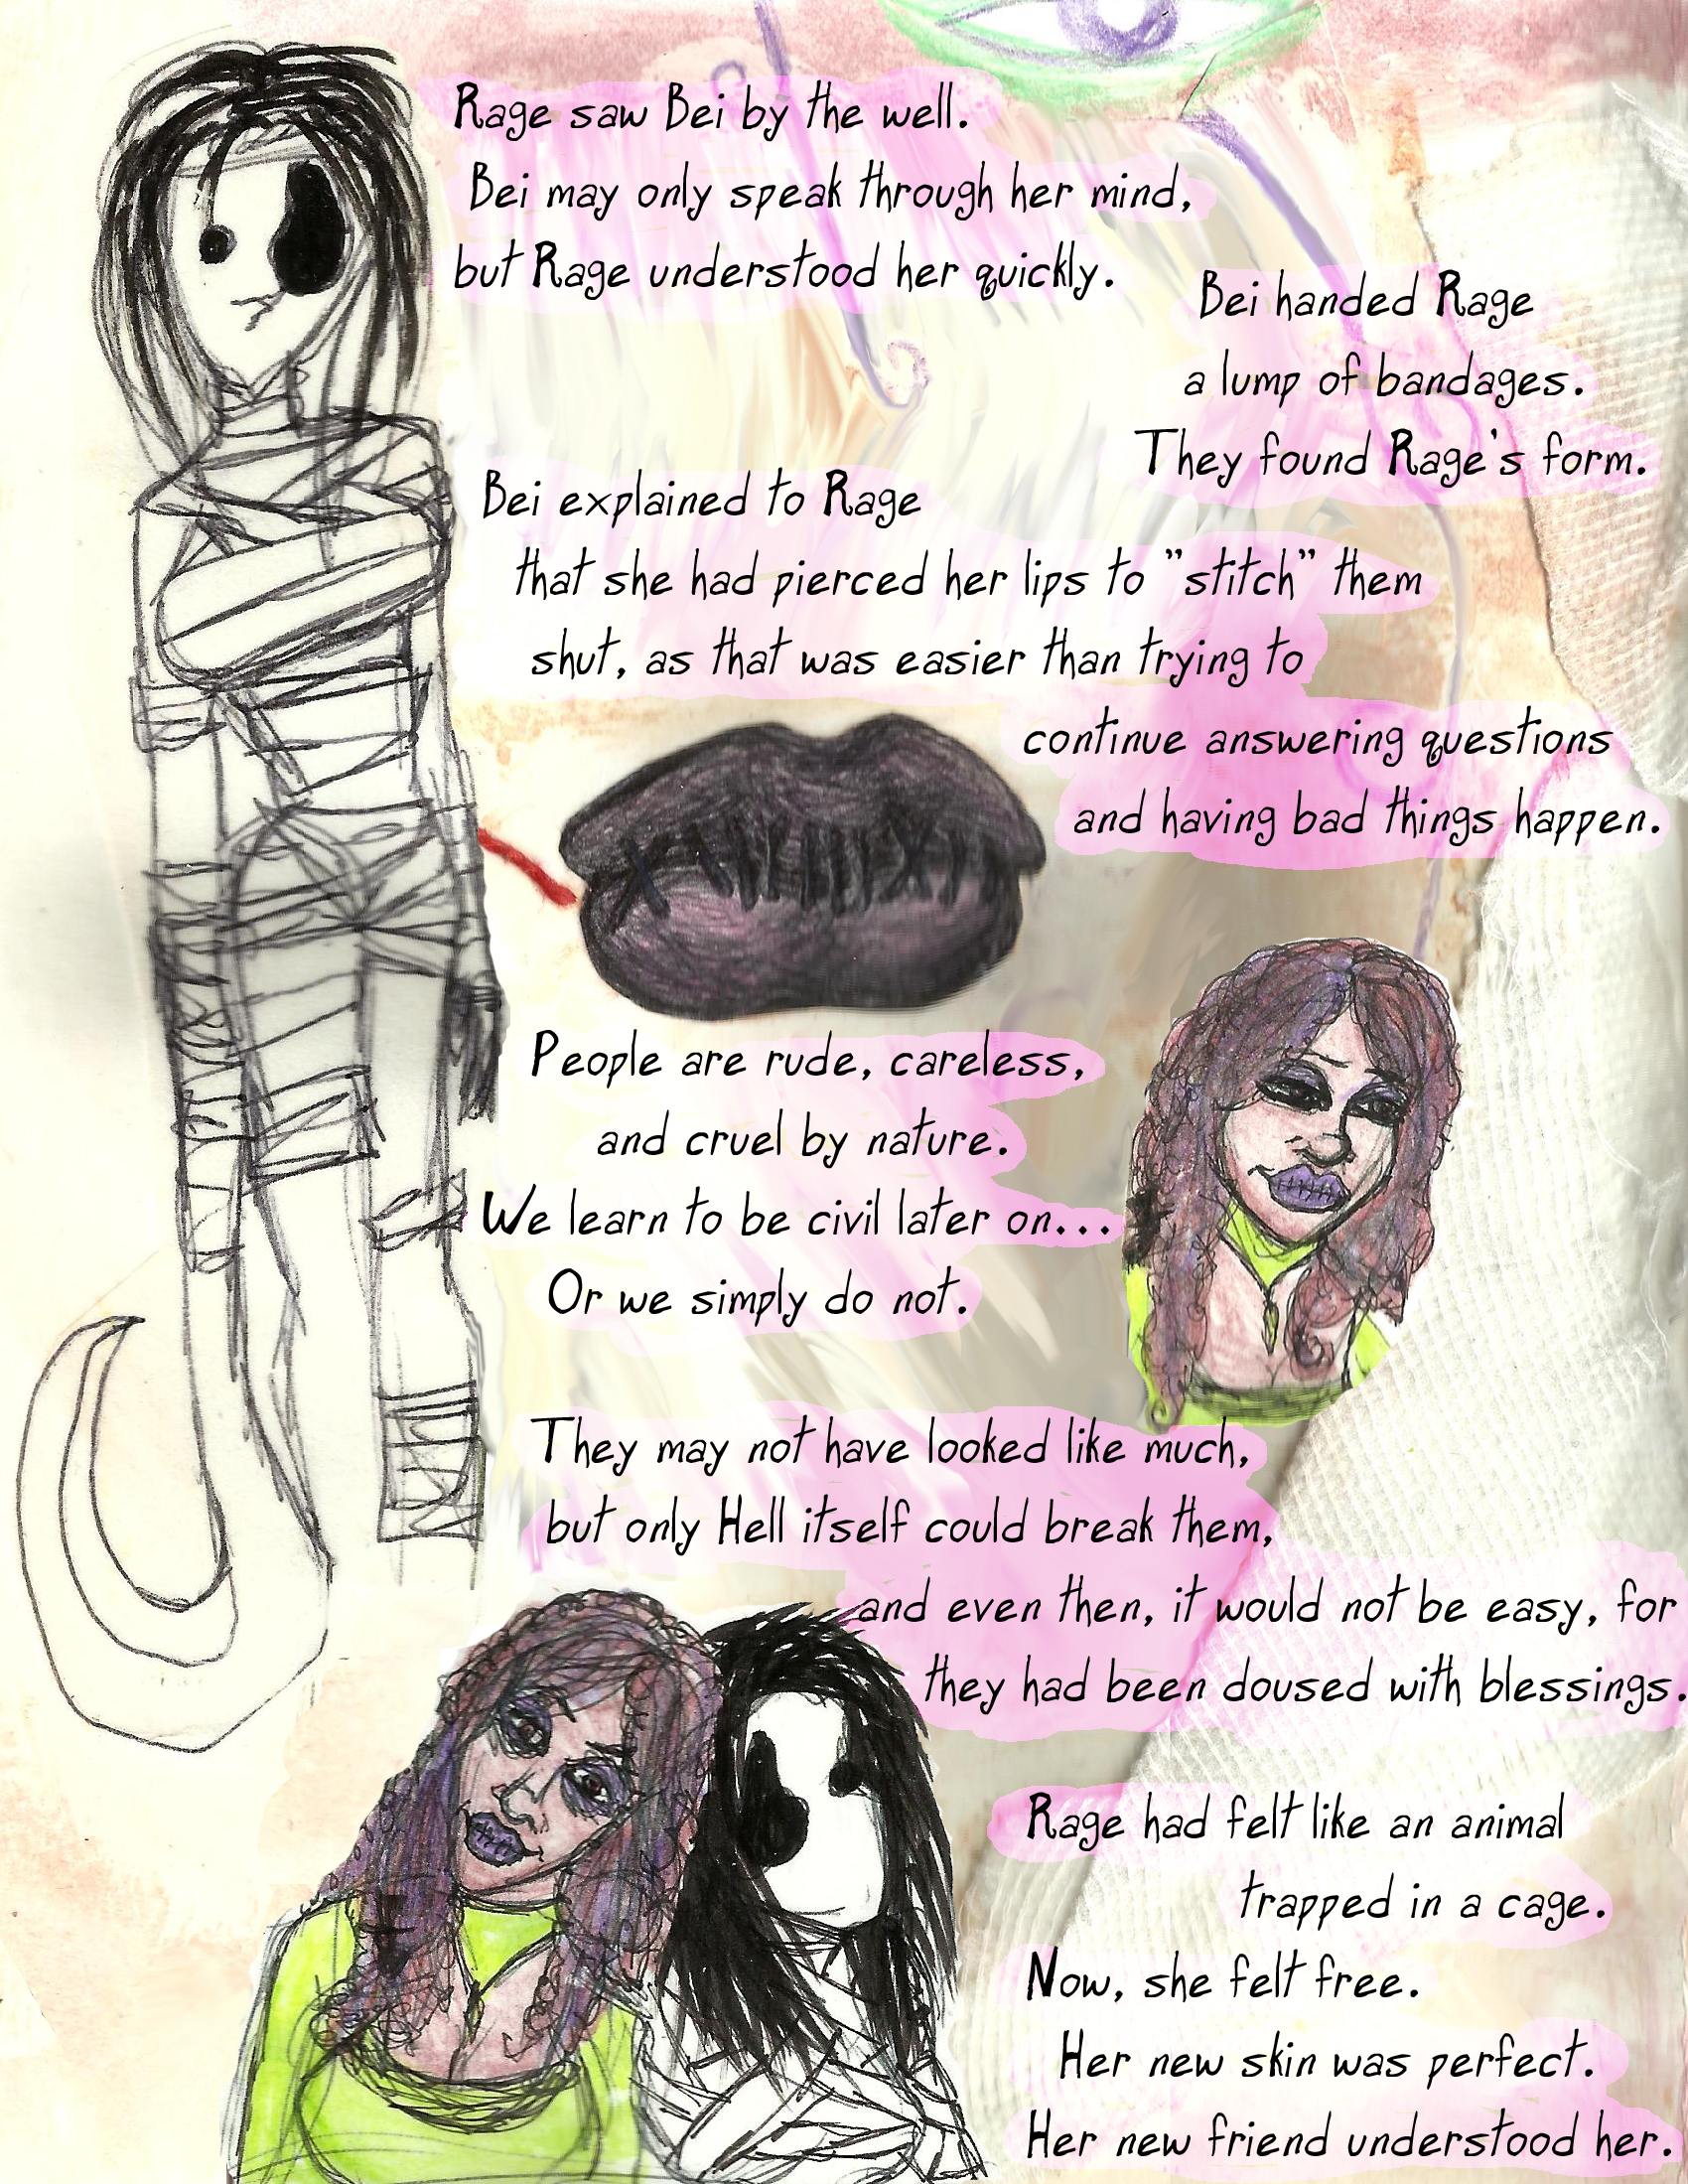 Rage saw Bei by the well.
Bei may only speak through her mind,
but Rage understood her quickly.
Bei handed Rage
a lump of bandages.
They found Rage's form.
Bei explained to Rage
that she had pierced her lips to "stitch" them
shut, as that was easier than trying to
continue answering questions
and having bad things happen.
People are rude, careless,
and cruel by nature.
We learn to be civil later on...
Or we simply do not.
They may not have looked like much,
but only Hell itself could break them,
and even then, it would not be easy, for
they had been doused with blessings.
Rage had felt like an animal
trapped in a cage.
Now, she felt free.
Her new skin was perfect.
Her new friend understood her.